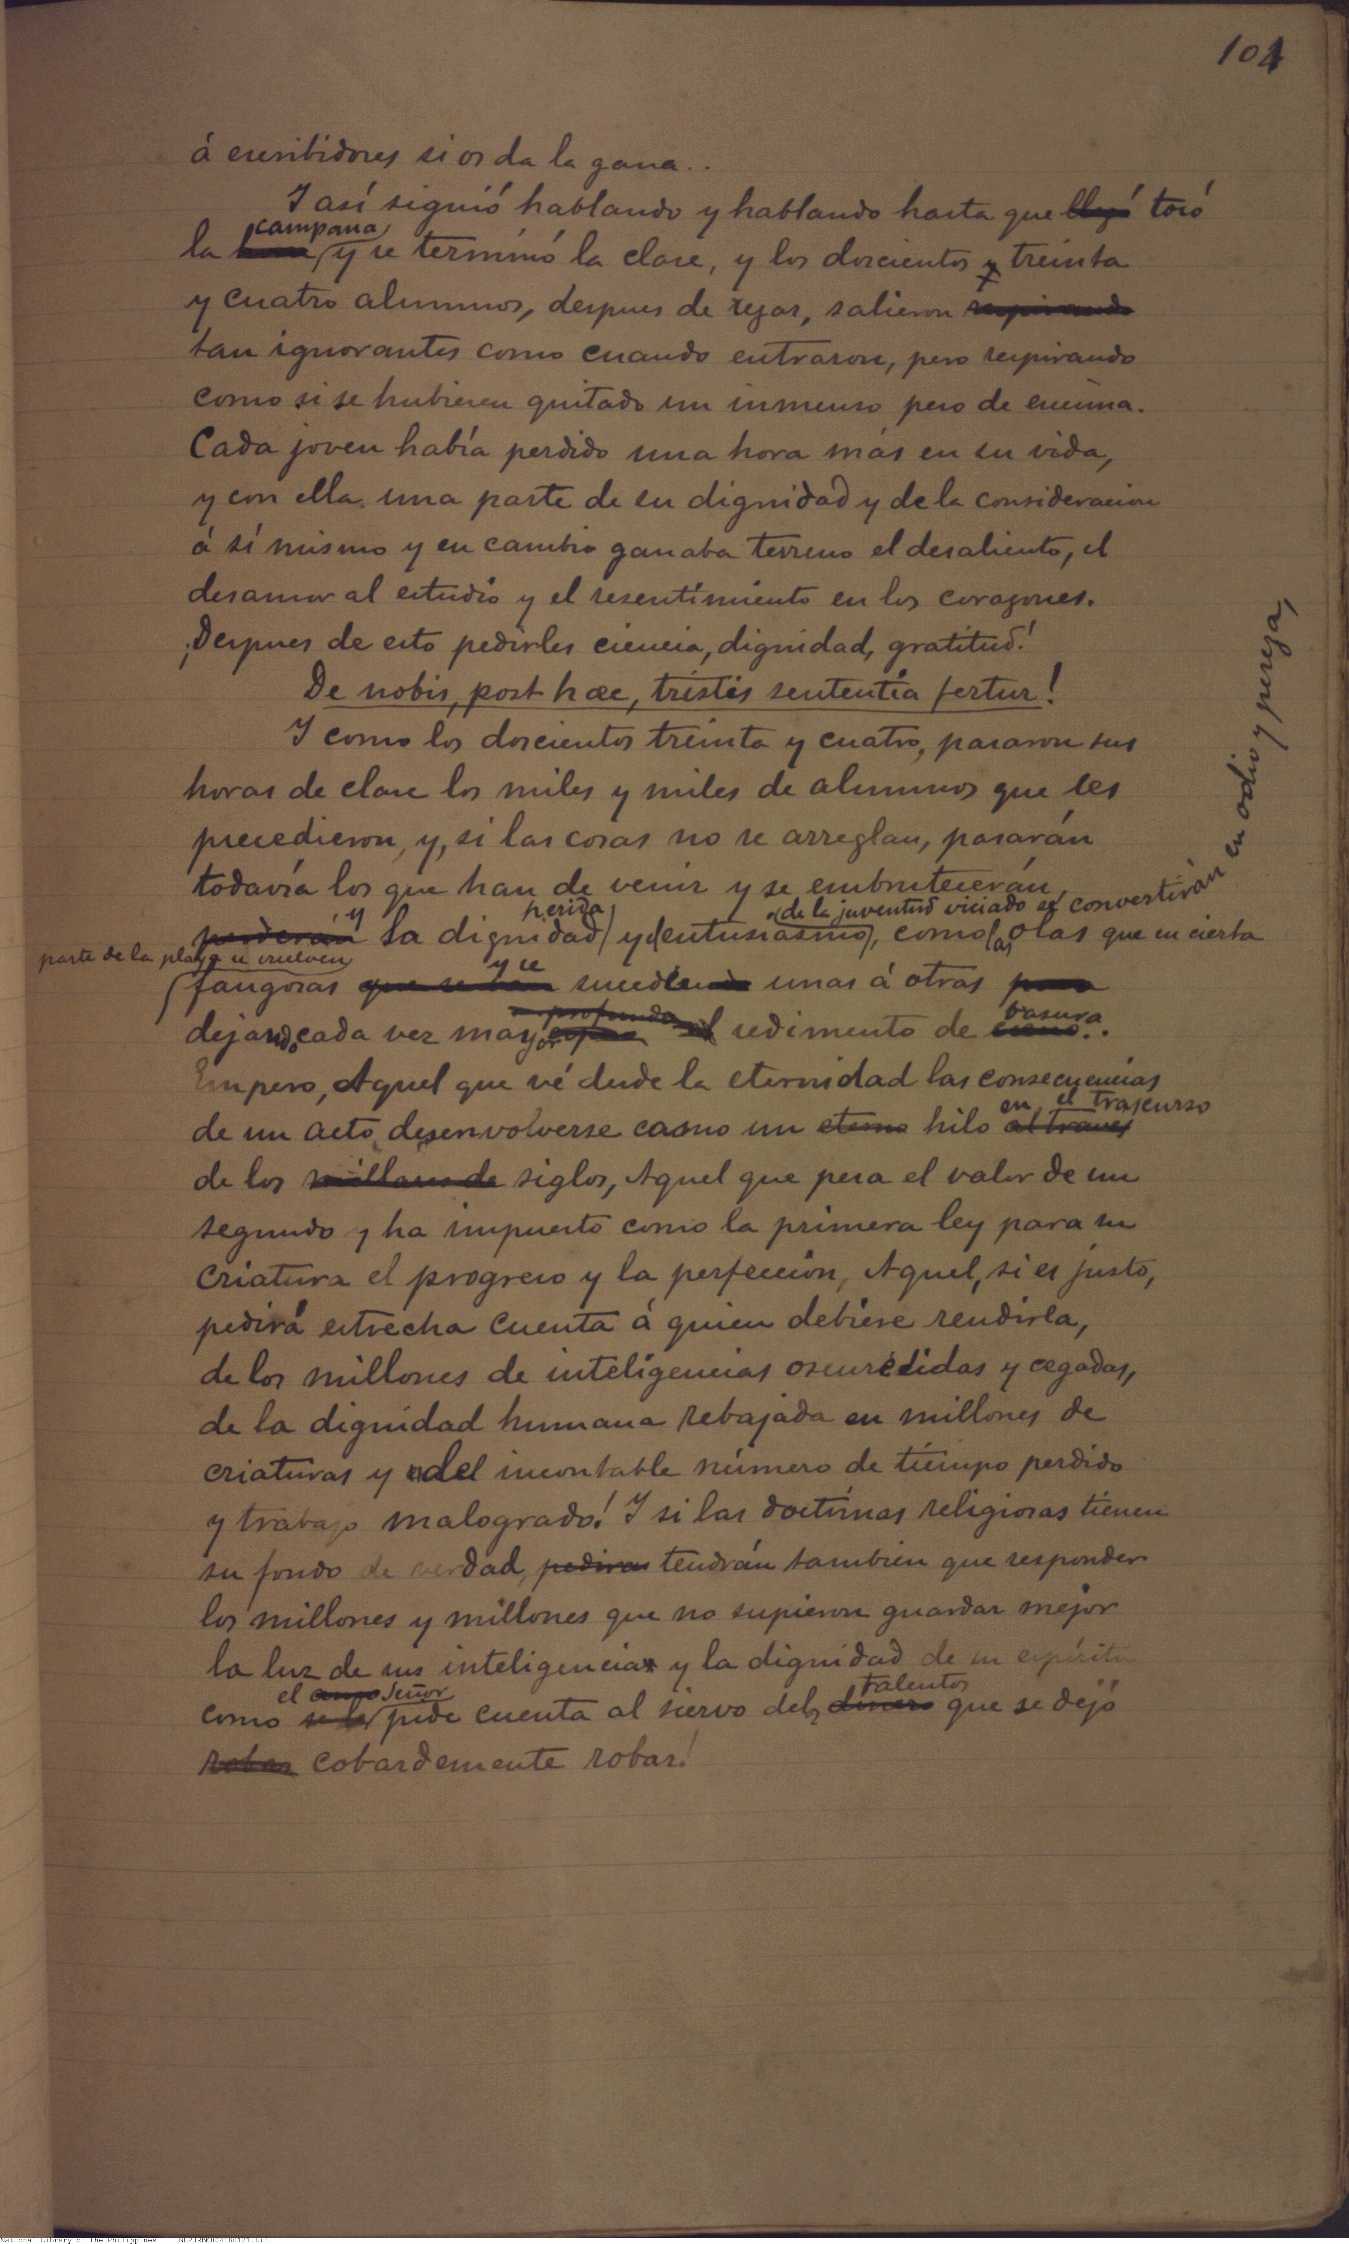 104
á escribidores si os da la gana..
Y así siguió hablando y hablando hasta que llegó tocó
la hora campana y se terminó la clase, y los doscientos y treinta
y cuatro alumnos, despues de rezar, salieron respirando
tan ignorantes como cuando entraron, pero respirando
como si se hubiesen quitado un inmenso peso de encima.
Cada joven había perdido una hora más en su vida,
y con ella una parte de su dignidad y de la consideracion
á sí mismo y en cambio ganaba terreno el desaliento, el
desamor al estudio y el resentimiento en los corazones.
¡Despues de esto pedirles ciencia, dignidad, gratitud!
De nobis, post hæc, tristis sententia fertur!
Y como los doscientos treinta y cuatro, pasaron sus
horas de clase los miles y miles de alumnos que les
precedieron, y, si las cosas no se arreglan, pasarán
todavía los que han de venir y se embrutecerán,
perderán y la dignidad herida y el entusiasmo de la juventud viciado se convertirán en odio y pereza, como las olas que en cierta
parte de la playa se vuelven
fangosas que se van y se suceden unas á otras para
dejando cada vez mayor profundo el sedimento de cieno basura..
Empero, Aquel que vé desde la eternidad las consecuencias
de un acto desenvolverse como un eterno hilo al traves en el trascurso
de los millares de siglos, Aquel que pesa el valor de un
segundo y ha impuesto como la primera ley para su
criatura el progreso y la perfección, Aquel, si es justo,
pedirá estrecha cuenta á quien debiere rendirla,
de los millones de inteligencias oscurecidas y cegadas,
de la dignidad humana rebajada en millones de
criaturas y del incontable número de tiempo perdido
y trabajo malogrado! Y si las doctrinas religiosas tienen
su fondo de verdad, pediran tendrán tambien que responder
los millones y millones que no supieron guardar mejor
la luz de sus inteligencias y la dignidad de su espíritu
como se le el amo Señor pide cuenta al siervo de los dinero talentos que se dejó
robar cobardemente robar!